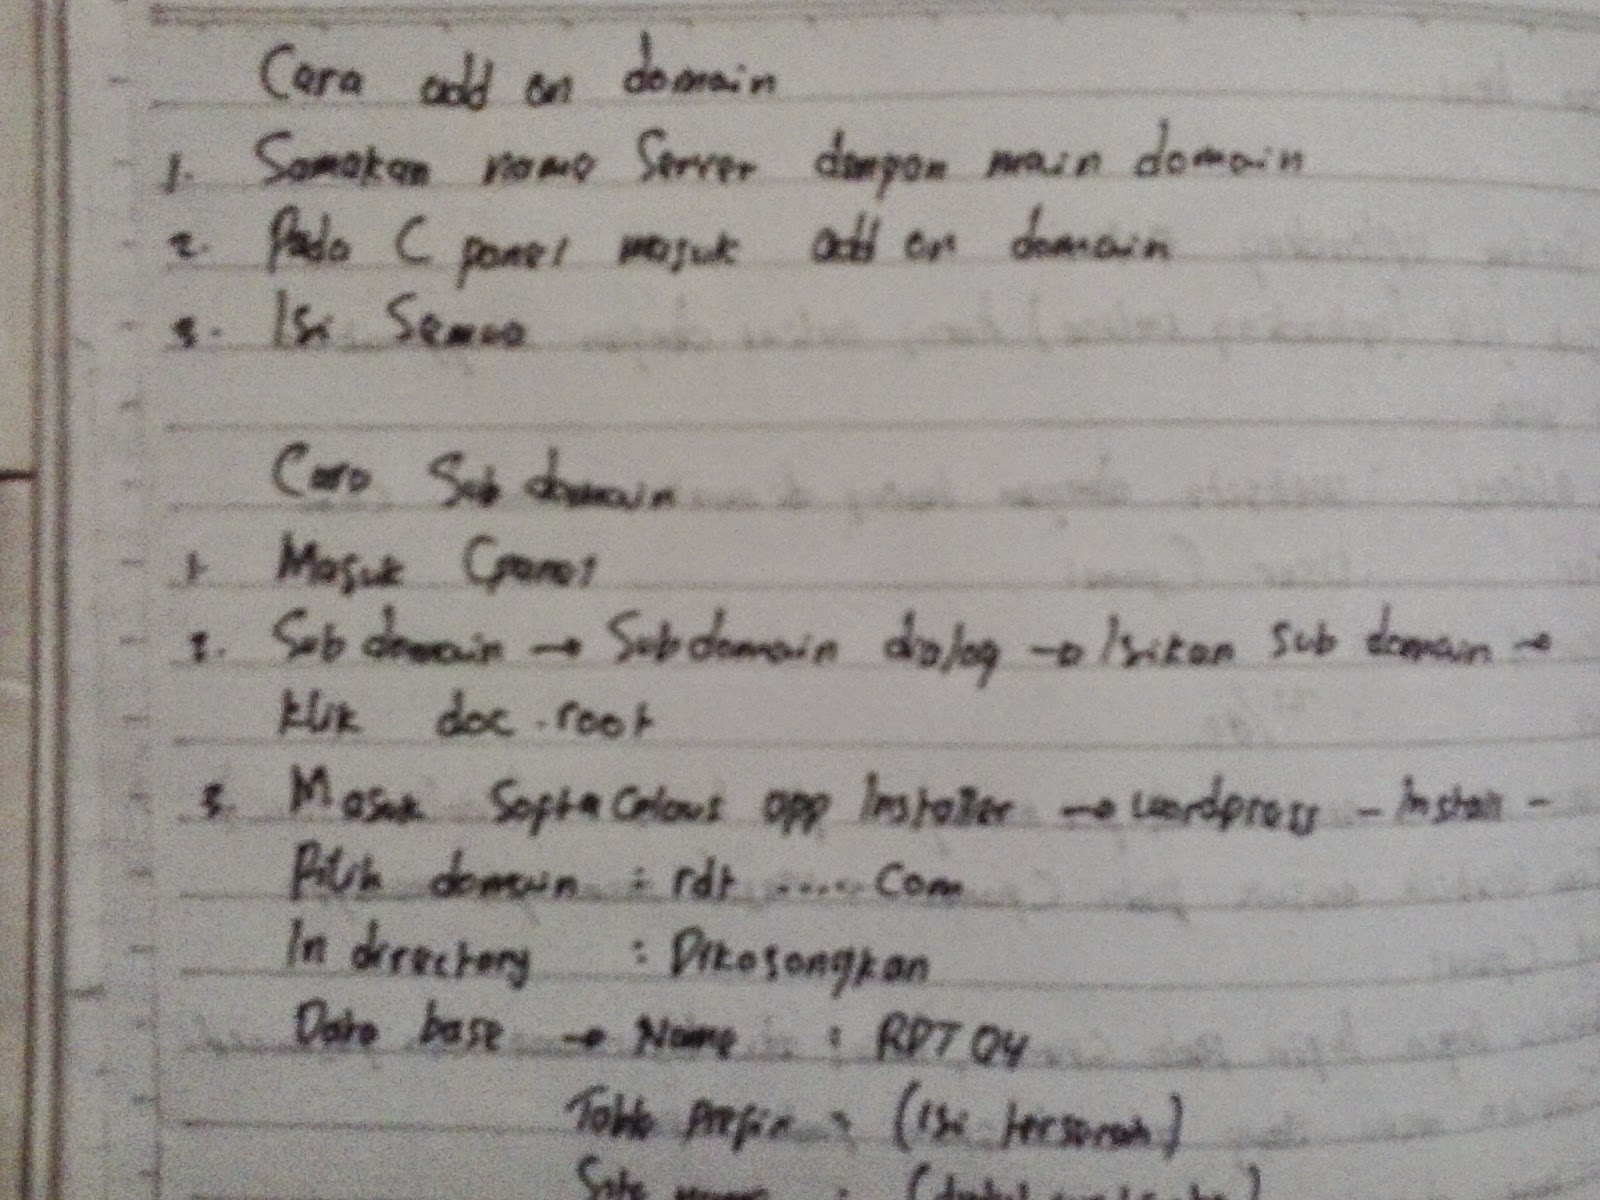 Cara add on domain
1. Samakan name Server dengan main domain
2. Pada C panel masuk add on domain
3. Isi Semua
Cara Sub domain
1. Masuk Cpanel
2. Sub domain → Sub domain dialog → Isikan sub domain →
klik doc. root
3. Masuk Softaculous app Installer → wordpress - install -
Pilih domain : rdt ..... Com
In dirrectory : Dikosongkan
Data base → Name : RDT 04
Table Prefix : (Isi terserah)
Site name :